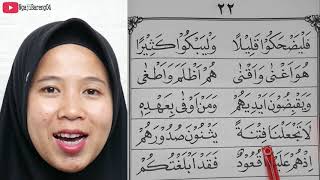 NgajiBareng04
٢٢
فَلْيَضْحَكُوْا قَلِيْلًا وَلْيَبْكُوْا كَثِيْرًا
هُوَ اَغْنٰى وَاَقْنٰى هُمْ اَظْلَمَ وَاَطْغٰى
وَيَقْبِضُوْنَ اَيْدِيَهُمْ وَمَنْ اَوْفٰى بِعَهْدِهٖ
لَا تَجْعَلْنَا فِتْنَةً يَثْنُوْنَ صُدُوْرَهُمْ
اِذْهُمْ عَلَيْهَا قُعُوْدٌ فَقَدْ اَبْلَغْتُكُمْ